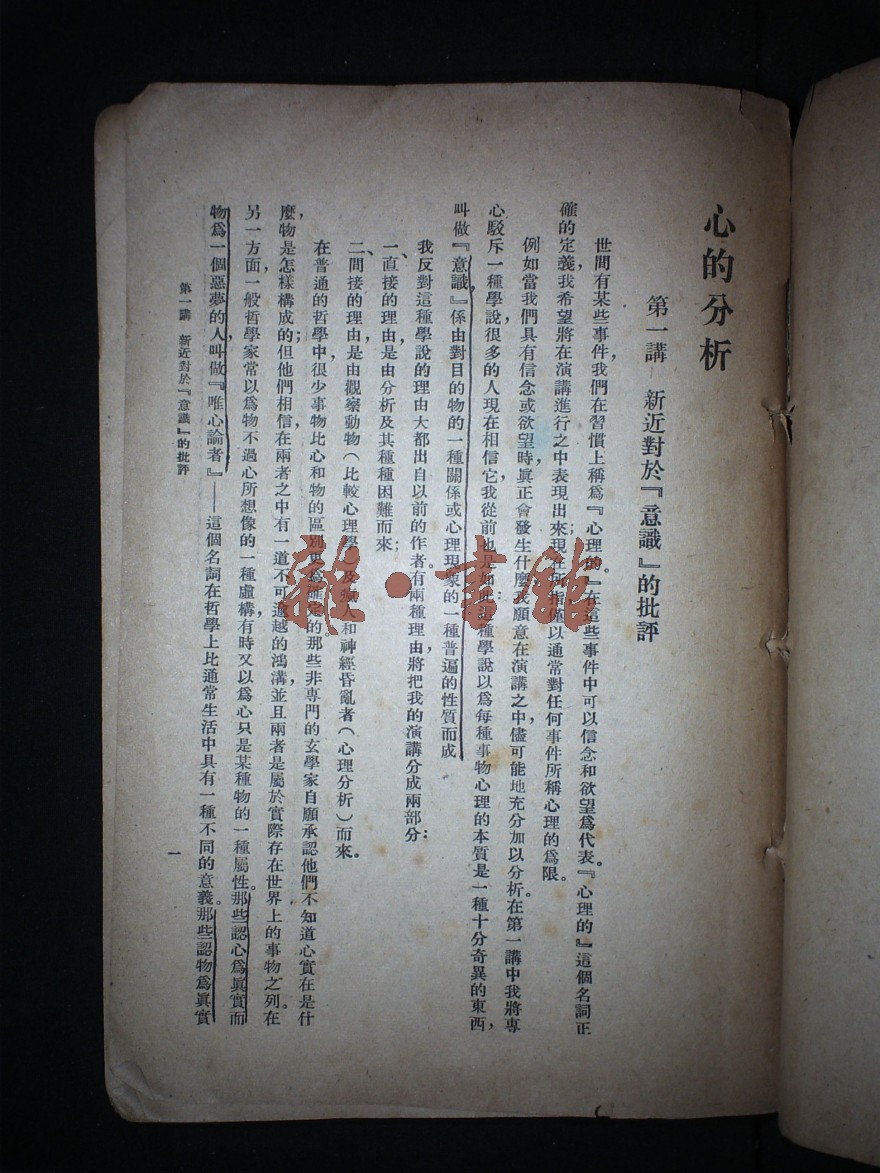 心的分析
第一講 新近對於『意識』的批評
世間有某些事件，我們在習慣上稱爲『心理的。』在這些事件中可以信念和欲望爲代表。『心理的』這個名詞正
確的定義我希望將在演講進行之中表現出來；現在所指僅以通常對任何事件所稱心理的爲限。
例如當我們具有信念或欲望時，眞正會發生什麼，我願意在演講之中，儘可能地充分加以分析。在第一講中我將專
心駁斥一種學說，很多的人現在相信它，我從前也是如此：這種學說以爲每種事物心理的本質是一種十分奇異的東西，
叫做『意識，』係由對目的物的一種關係或心理現象的一種普遍的性質而成
我反對這種學說的理由大都出自以前的作者。有兩種理由將把我的演講分成兩部分：
一、直接的理由，是由分析及其種種困難而來；
二、間接的理由，是由觀察動物（比較心理學）及 人和神經昏亂者（心理分析）而來。
在普通的哲學中，很少事物比心和物的區別更爲確定的。那些非專門的玄學家自願承認他們不知道心實在是什
麼，物是怎樣構成的；但他們相信在兩者之中有一道不可逾越的鴻溝，並且兩者是屬於實際存在世界上的事物之列。在
另一方面，一般哲學家常以爲物不過心所想像的一種虛構，有時又以爲心只是某種物的一種屬性。那些認心爲眞實而
物爲一個惡夢的人，叫做『唯心論者』——這個名詞在哲學上比通常生活中具有一種不同的意義。那些認物爲眞實
第一講 新近對於『意識』的批評
一
雜·書館